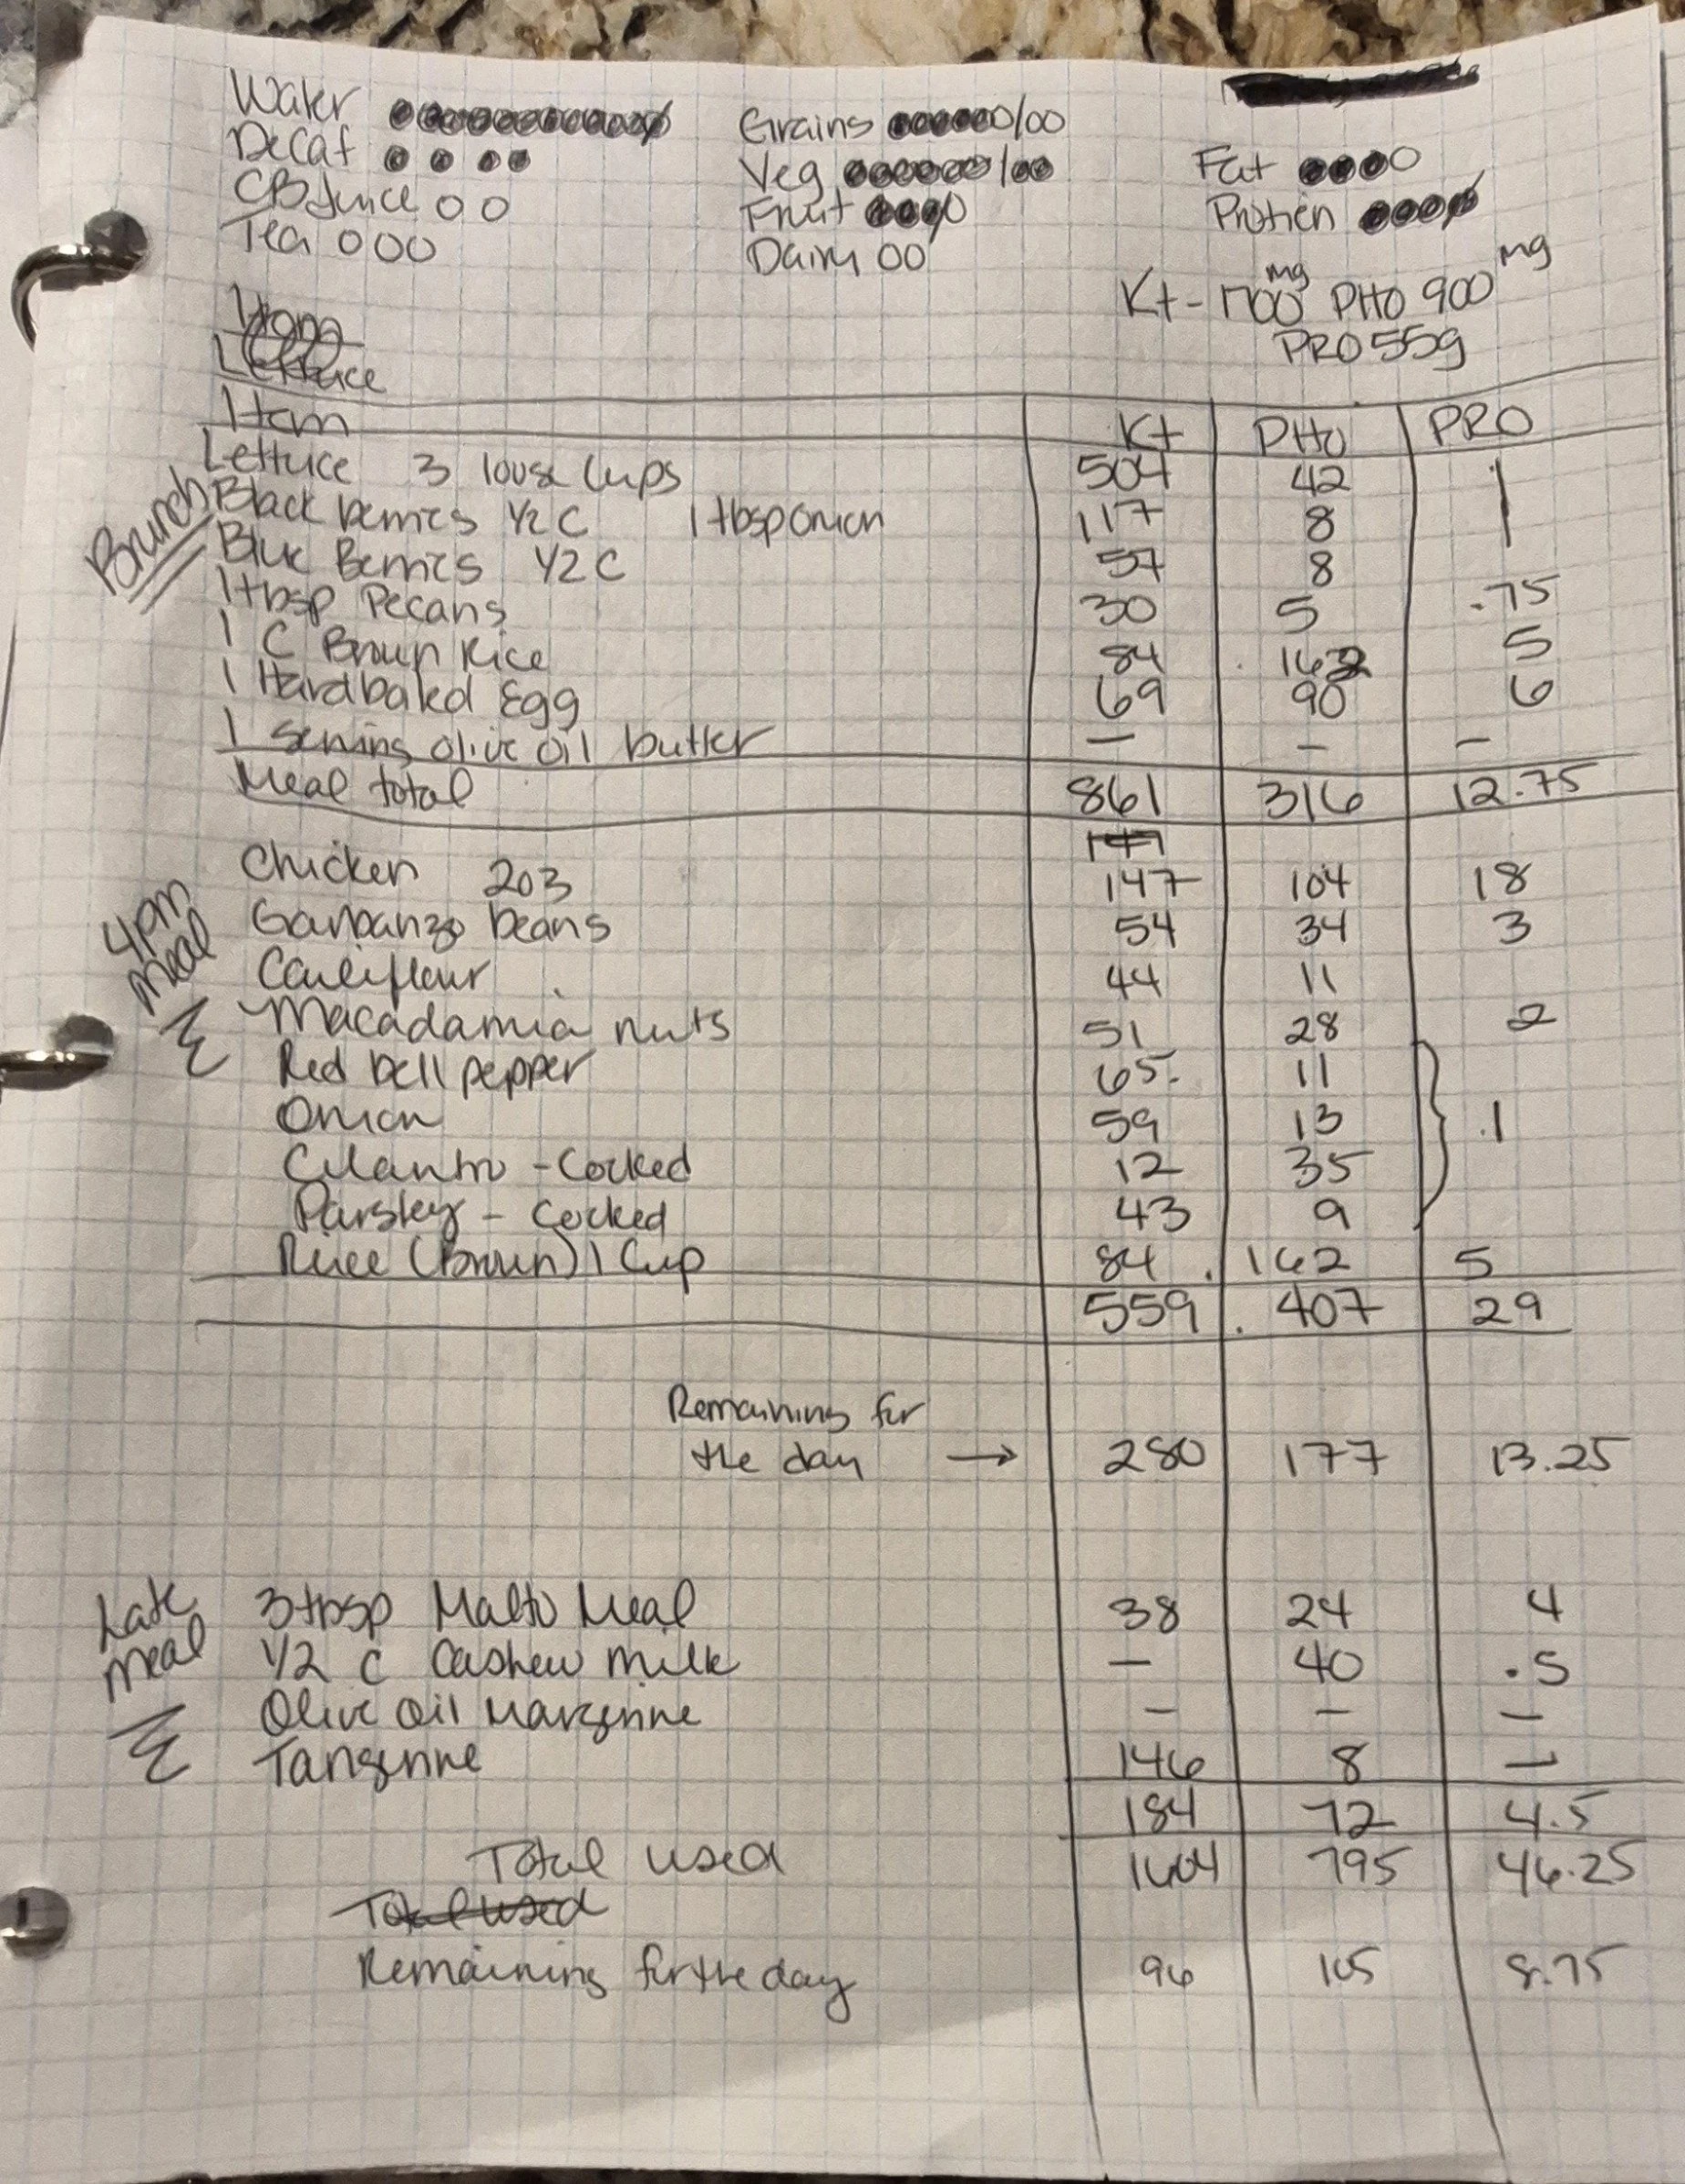 Water
Decaf
CB Juice
Tea
Grains
Veg
Fruit
Dairy
Fat
Protien
K+ - 1700 mg PHO 900 mg
PRO 55g
Item
Lettuce
Item K+ PHO PRO
Brunch
Lettuce 3 loose Cups 504 42 1
Black berries 1/2 C 1 tbsp onion 117 8 1
Blue Berries 1/2 C 57 8
1 tbsp Pecans 30 5 .75
1 C Brown Rice 84 162 5
1 Hardbaked Egg 69 90 6
1 serving olive oil butter — — —
Meal total 861 316 12.75
147
4pm Meal
Chicken 2oz 147 104 18
Garbanzo beans 54 34 3
Cauliflour 44 11
Macadamia nuts 51 28 2
Red bell pepper 65 11
Onion 59 13 .1
Cilantro - Cocked 12 35
Parsley - Cocked 43 9
Rice (Brown) 1 Cup 84 162 5
559 407 29
Remaining for
the day → 280 177 13.25
Late Meal
3 tbsp Malto Meal 38 24 4
1/2 C Cashew milk — 40 .5
Olive oil Margerine — — —
Tangerine 146 8 —
184 72 4.5
Total used 1604 795 46.25
Total used
Remaining for the day 96 105 8.75